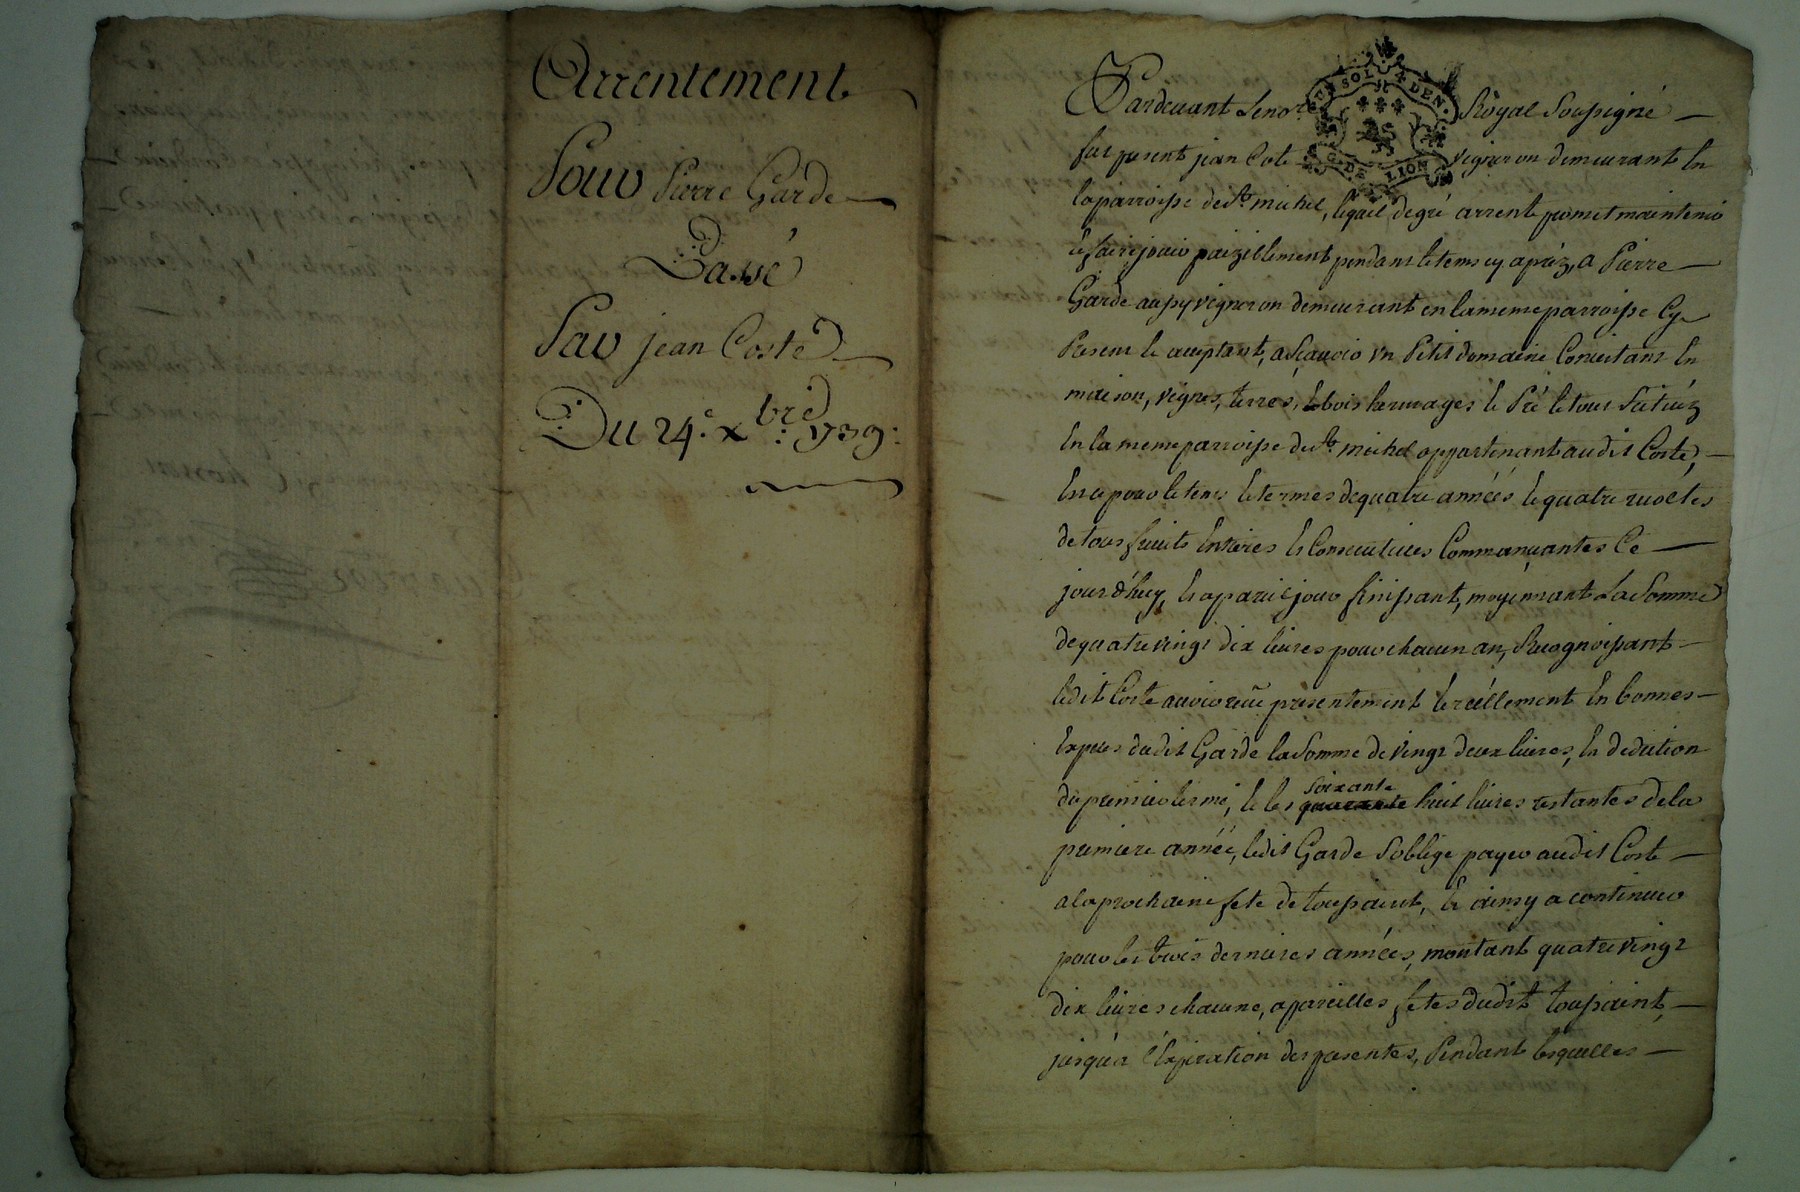 Arrentement
Pour Pierre Garde
Passé
Par jean Coste
Du 24.e xbre 1739.
Pardevant Le nore Royal Soussigné
SEN SOL 4 DEN.
G. DE LION
fut present jean Coste vigneron demeurant En
la parroisse de St. michel, lequel de gré arrente promet maintenir
Et faire jouir paiziblement pendant le tems cy aprèz, a Pierre
Garde aussy vigneron demeurant en la meme parroisse Cy
Present Et acceptant, a Sçavoir vn Petit domaine Concistant En
maison, vignes, terres, bois hermages Et Pré le tout Scituéz
En la meme parroisse de St. michel appartenant audit Coste,
Et ce pour le tems Et termes de quatre années Et quatre recoltes
de tous fruits Entieres Et Consecutives Commançantes Ce
jourd'huy, Et a pareil jour finissant, moyennant La Somme
de quatre vingt dix livres pour chacun an, Recognoissant
ledit Coste avoir reçu presentement Et reéllement En bonnes
Especes dudit Garde la Somme de vingt deux livres, En deduction
du premier terme, Et les soixante huit livres restantes de la
premiere année, ledit Garde S'oblige payer audit Coste
a la prochaine fete de toussaint, Et ainsy a continuer
pour les trois dernieres années, montant quatre vingt
dix livres chacune, a pareilles fetes dudit toussaint,
jusqu'a l'Expiration des presentes, Pendant lesquelles